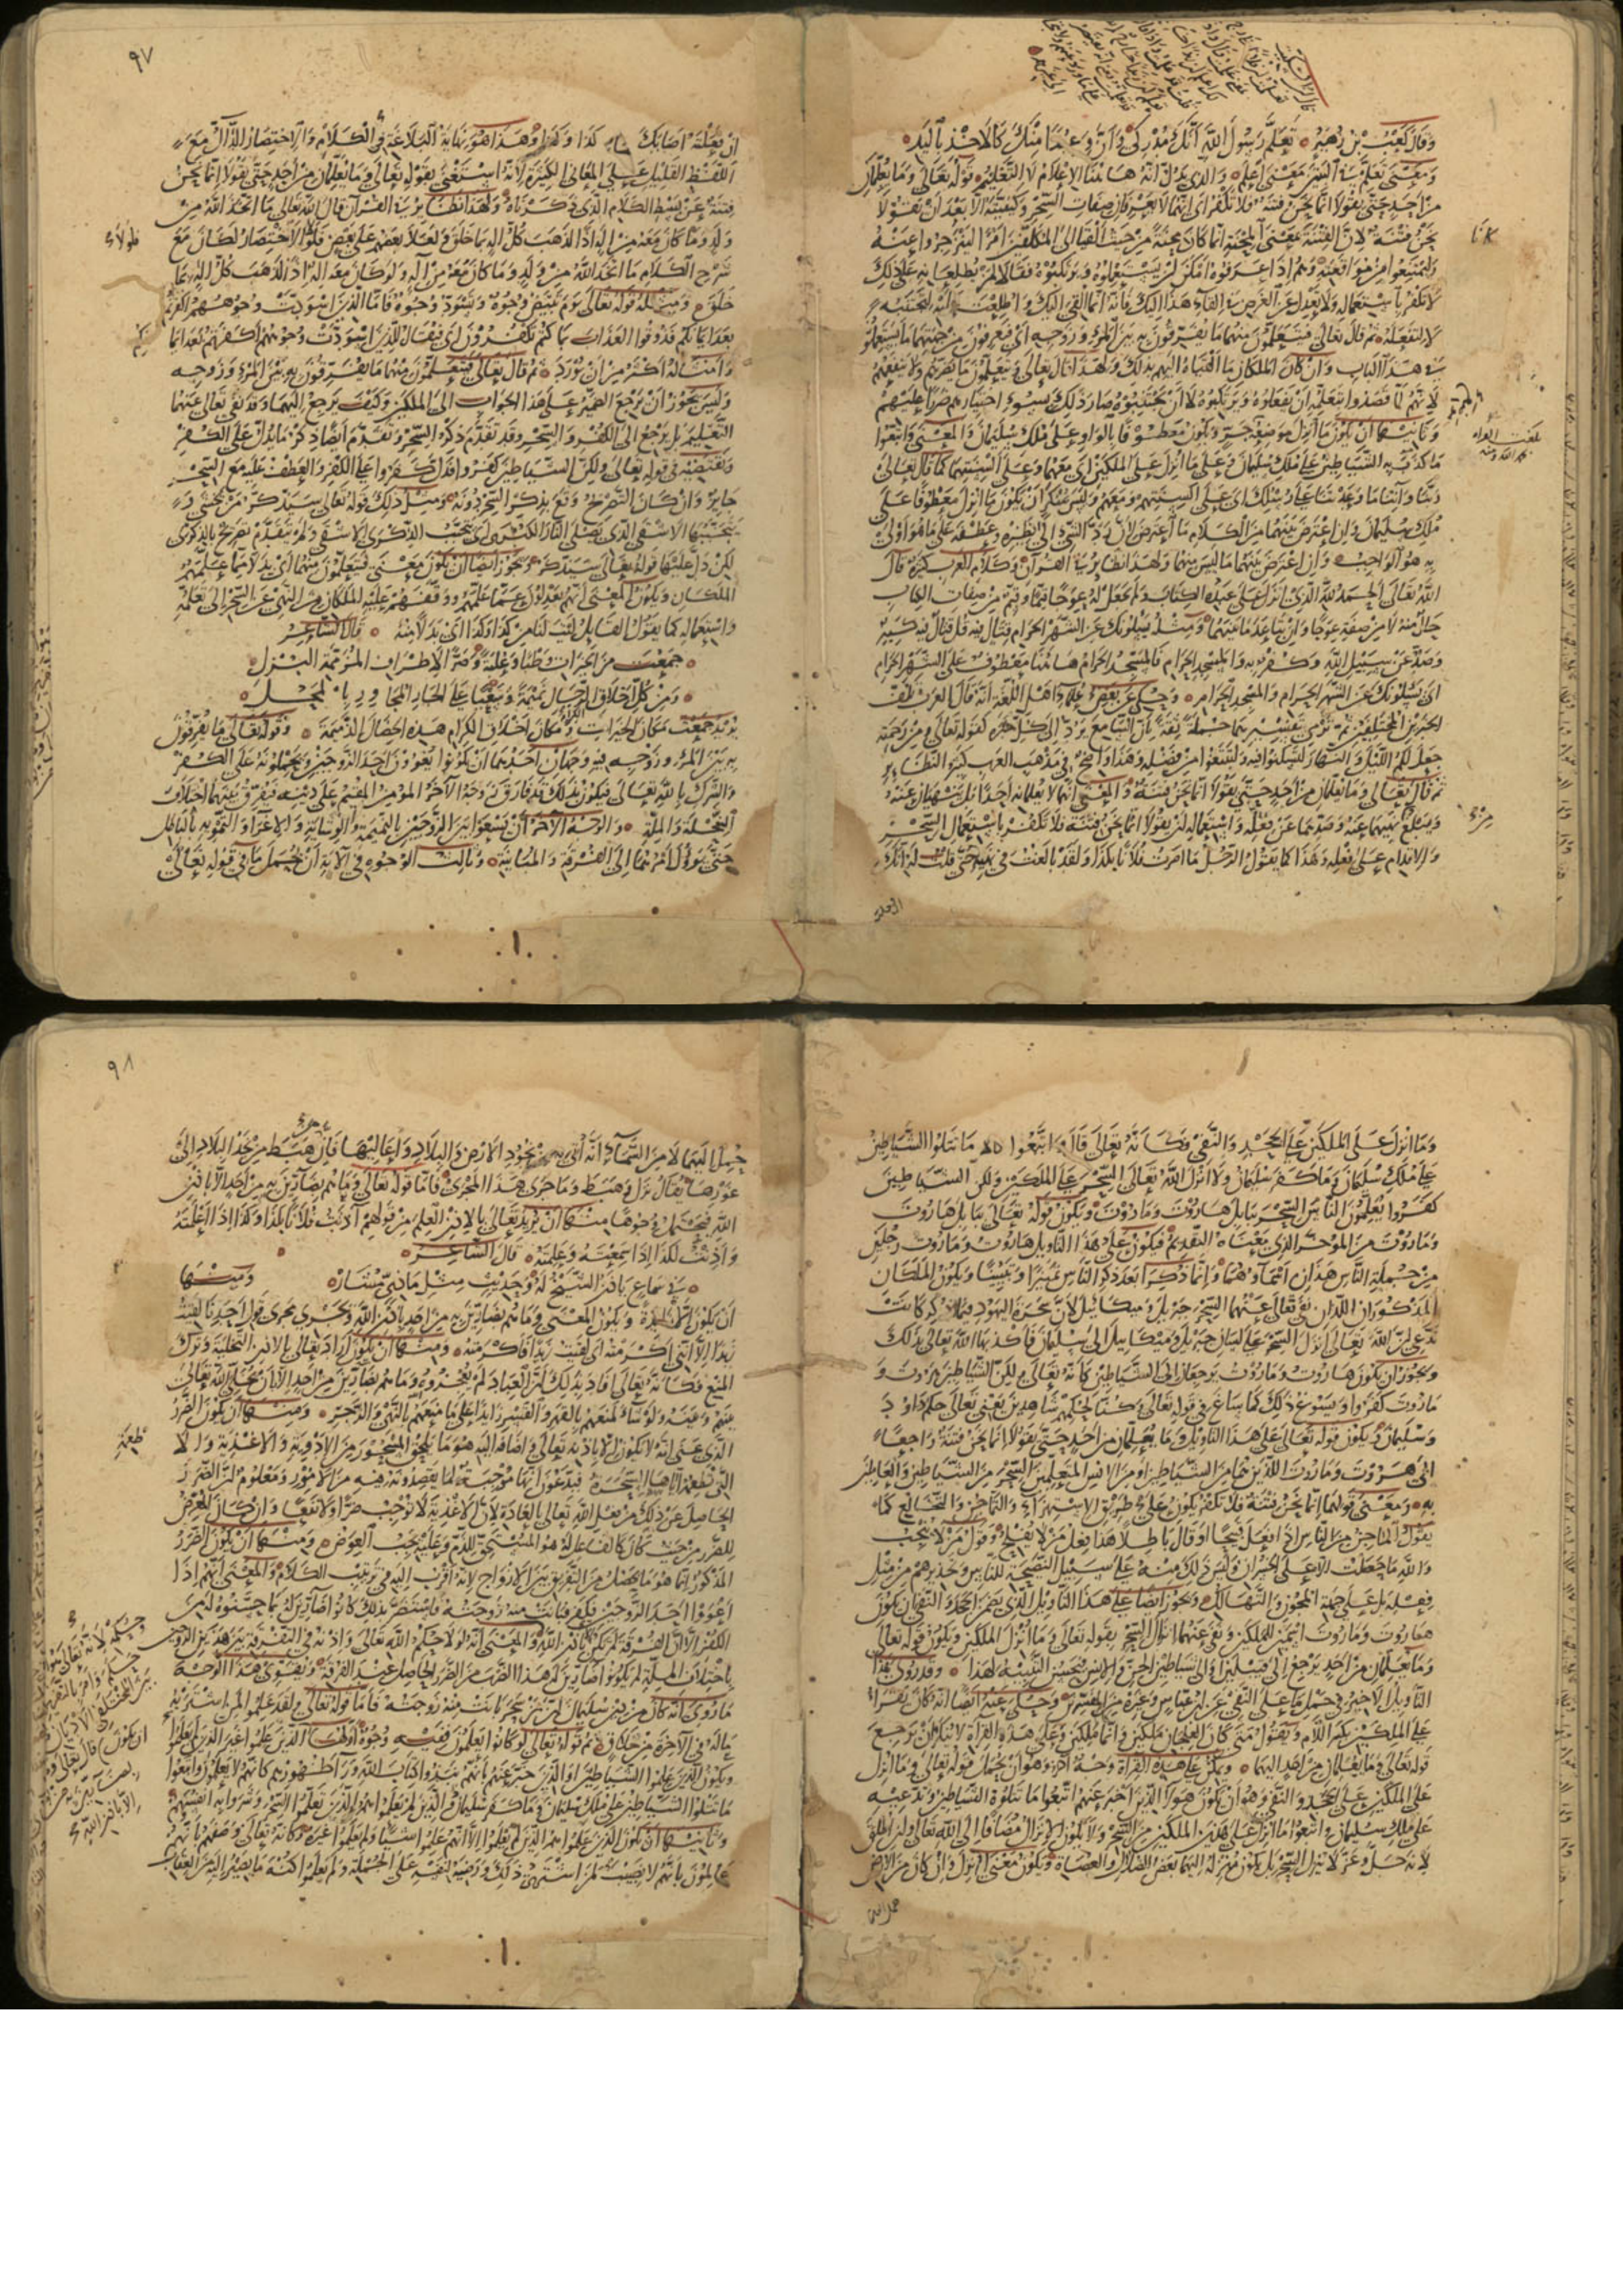 وقال كعب بن زهير تعلم رسول الله انك مدركي وان وعيدا منك كالاخذ باليد
ومعنى تعلم في البيتين معنى اعلم والذي يدل انه هاهنا الاعلام لا التعليم قوله تعالى وما يعلمان
من احد حتى يقولا انما نحن فتنة فلا تكفر اي انهما لا يعرفان صفات السحر وكيفيته الا بعد ان يقولا
نحن فتنة لان الفتنة بمعنى المحنة انما كان محنة من حيث القيا الى المكلفين امرا لينزجروا عنه
وليمتنعوا من مواقعته وهم اذا عرفوه امكن ان يستعملوه ويرتكبوه فقالا لمن يطلعانه على ذلك
لا تكفر باستعماله ولا تعدل عن الغرض في القاء هذا اليك فانه انما القي اليك واطلعت عليه لتجتنبه
لا لتفعله ثم قال تعالى فيتعلمون منهما ما يفرقون به بين المرء وزوجه اي فيعرفون من جهتهما ما يستعملونه
في هذا الباب وان كان الملكان ما القياه اليهم بذلك ولهذا قال تعالى ويتعلمون ما يضرهم ولا ينفعهم
لانهم لما قصدوا بتعلمه ان يفعلوه ويرتكبوه لا ان يجتنبوه صار ذلك بسوء اختيارهم ضررا عليهم
وثانيها ان يكون ما انزل موضعه جر ويكون معطوفا بالواو على ملك سليمان والمعنى واتبعوا
ما كذب به الشياطين على ملك سليمان وعلى ما انزل على الملكين اي معهما وعلى السنتهما كما قال تعالى
ربنا وآتنا ما وعدتنا على رسلك اي على السنتهم ومعهم وليس بمنكر ان يكون ما انزل معطوفا على
ملك سليمان وان اعترض بينهما من الكلام ما اعترض لان رد الشيء الى نظيره وعطفه على ما هو اولى
به هو الواجب وان اعترض بينهما ما ليس منهما ولهذا نظائر في القرآن وكلام العرب كثيرة قال
الله تعالى الحمد لله الذي انزل على عبده الكتاب ولم يجعل له عوجا قيما وقيم من صفات الكتاب
حال منه لا من صفة عوجا وان تباعد ما بينهما ومثله يسئلونك عن الشهر الحرام قتال فيه قل قتال فيه كبير
وصد عن سبيل الله وكفر به والمسجد الحرام فالمسجد الحرام هاهنا معطوف على الشهر الحرام
اي يسئلونك عن الشهر الحرام والمسجد الحرام وحكي عن بعض علماء اهل اللغة انه قال العرب تلف
الخبرين المختلفين ثم ترمي بتفسيرهما جملة ثقة بان السامع يرد الى كل خبره كقوله تعالى ومن رحمته
جعل لكم الليل والنهار لتسكنوا فيه ولتبتغوا من فضله وهذا واضح في مذهب العرب كثير النظائر
ثم قال تعالى وما يعلمان من احد حتى يقولا انما نحن فتنة والمعنى انهما لا يعلمان احدا بل ينهيان عنه
ويبلغ نهيهما عنه وصدهما عن فعله واستعماله ان يقولا انما نحن فتنة فلا تكفر باستعمال السحر
والاقدام على فعله وهذا كما يقول الرجل ما امرت فلانا بكذا ولقد بالغت في نهيه حتى قلت له انك
ان فعلته
٩٧
ان فعلته اصابك كذا وكذا وهذا هو نهاية البلاغة في الكلام والاختصار الدال مع
اللفظ القليل على المعاني الكثيرة لانه استغنى بقوله تعالى وما يعلمان من احد حتى يقولا انما نحن
فتنة عن بسط الكلام الذي ذكرناه ولهذا نظائر في القرآن قال الله تعالى ما اتخذ الله من
ولد وما كان معه من اله اذا لذهب كل اله بما خلق ولعلا بعضهم على بعض فلولا الاختصار لكان مع
شرح الكلام ما اتخذ الله من ولد وما كان معه من اله ولو كان معه اله اذا لذهب كل اله بما
خلق ومثله قوله تعالى يوم تبيض وجوه وتسود وجوه فاما الذين اسودت وجوههم اكفرتم
بعد ايمانكم فذوقوا العذاب بما كنتم تكفرون اي فيقال للذين اسودت وجوههم اكفرتم بعد ايمانكم
وامثاله اكثر من ان نورد ثم قال تعالى فيتعلمون منهما ما يفرقون به بين المرء وزوجه
وليس يجوز ان يرجع الضمير على هذا الجواب الى الملكين وكيف يرجع اليهما وقد نفى تعالى عنهما
التعليم بل يرجع الى الكفر والسحر وقد تقدم ذكر السحر وتقدم ايضا ذكر ما يدل على الكفر
ويقتضيه في قوله تعالى ولكن الشياطين كفروا فدل كفروا على الكفر والعطف عليه مع السحر
جايز وان كان التصريح وقع بذكر السحر دونه ومثل ذلك قوله تعالى سيذكر من يخشى و
يتجنبها الاشقى الذي يصلى النار الكبرى اي يتجنب الذكرى الاشقى ولم يتقدم تصريح بالذكرى
لكن دل عليها قوله تعالى سيذكر ويجوز ايضا ان يكون معنى فيتعلمون منهما اي بدلا مما علمهم
الملكان ويكون المعنى انهم يعدلون عما علمهم ووقفهم عليه الملكان من النهي عن السحر الى تعلمه
واستعماله كما يقول القايل ليت لنا من كذا وكذا اي بدلا منه قال الشاعر
جمعت من الخيرات وطبا وعلبة وصرا لاطراف المزممة البزل
ومن كل اخلاق الرجال نميمة وسعيا على الجار المجاور بالمحل
يريد جمعت مكان الخيرات ومكان اخلاق الكرام هذه الخصال الذميمة وقوله تعالى ما يفرقون
به بين المرء وزوجه فيه وجهان احدهما ان يكونوا يغوون احد الزوجين ويحملونه على الكفر
والشرك بالله تعالى فيكون بذلك قد فارق زوجه الآخر المؤمن المقيم على دينه فيفرق بينهما اختلاف
النحلة والملة والوجه الآخر ان يسعوا بين الزوجين بالنميمة والوشاية والاغراء والتمويه بالباطل
حتى يؤول امرهما الى الفرقة والمباينة وثالث الوجوه في الآية ان نحمل ما في قوله تعالى
وما انزل على الملكين على الجحد والنفي فكانه تعالى قال واتبعوا ما تتلوا الشياطين
على ملك سليمان وما كفر سليمان ولا انزل الله تعالى السحر على الملكين ولكن الشياطين
كفروا يعلمون الناس السحر ببابل هاروت وماروت ويكون قوله تعالى ببابل هاروت
وماروت من المؤخر الذي معناه التقديم فيكون على هذا التاويل هاروت وماروت رجلين
من جملة الناس هذان اسماؤهما وانما ذكرا بعد ذكر الناس تمييزا وتبيينا ويكون الملكان
المذكوران اللذان نفى تعالى عنهما السحر جبريل وميكائيل لان سحرة اليهود فيما ذكر كانت
تدعي ان الله تعالى انزل السحر على لسان جبريل وميكائيل الى سليمان فاكذبها الله تعالى بذلك
ويجوز ان يكون هاروت وماروت يرجعان الى الشياطين كانه تعالى قال ولكن الشياطين هاروت و
ماروت كفروا ويسوغ ذلك كما ساغ في قوله تعالى وكنا لحكمهم شاهدين يعني تعالى حكم داود
وسليمان ويكون قوله تعالى على هذا التاويل وما يعلمان من احد حتى يقولا انما نحن فتنة راجعا
الى هروت وماروت اللذين هما من الشياطين او من الانس المتعلمين السحر من الشياطين والعاملين
به ومعنى قولهما انما نحن فتنة فلا تكفر يكون على طريق الاستهزاء والتماجن والتخالع كما
يقول الماجن من الناس اذا فعل قبيحا او قال باطلا هذا فعل من لا يفلح وقول من لا ينجب
والله ما حصلت الا على الخسران وليس ذلك منه على سبيل النصيحة للناس وتحذيرهم من مثل
فعله بل على جهة المجون والتهالك ويجوز ايضا على هذا التاويل الذي يتضمن الجحد والنفي ان يكون
هاروت وماروت اسمين للملكين ونفى عنهما انزال السحر بقوله تعالى وما انزل على الملكين ويكون قوله تعالى
وما يعلمان من احد يرجع الى قبيلتين او الى شياطين الجن والانس فتحسن التثنية لهذا وقد روي هذا
التاويل الاخير في حمل ما على النفي عن ابن عباس وغيره من المفسرين وحكي عنه ايضا انه كان يقرا
على الملكين بكسر اللام ويقول متى كان العلجان ملكين وانما كانا ملكين وعلى هذه القراءة لا ينكر ان يرجع
قوله تعالى وما يعلمان من احد اليهما ويمكن على هذه القراءة وجه آخر وهو ان يحمل قوله تعالى وما انزل
على الملكين على الجحد والنفي وهو ان يكون هؤلاء الذين اخبر عنهم اتبعوا ما تتلوه الشياطين وتدعيه
على ملك سليمان واتبعوا ما انزل على هذين الملكين من السحر ولا يكون الانزال مضافا الى الله تعالى وان اطلق
لانه جل وعز لا ينزل السحر بل يكون منزله اليهما بعض الضلال والعصاة ويكون معنى انزل وان كان من الارض
حمل اليهما
٩٨
حمل اليهما لا من السماء انه اتى به من نجود الارض والبلاد واعاليها فان من هبط من نجد البلاد الى
غورها يقال نزل وهبط وما جرى هذا المجرى فاما قوله تعالى وما هم بضارين به من احد الا باذن
الله فيحتمل وجوها منها ان يريد تعالى بالاذن العلم من قولهم آذنت فلانا بكذا وكذا اذا اعلمته
واذنت لكذا اذا سمعته وعلمته قال الشاعر
في سماع ياذن الشيخ له وحديث مثل ماذي مشار ومنها
ان يكون الا زايدة ويكون المعنى وما هم بضارين به من احد باذن الله ويجري مجرى قول احدنا لقيت
زيدا الا اني اكرمته اي لقيت زيدا فاكرمته ومنها ان يكون اراد تعالى بالاذن التخلية وترك
المنع فكانه تعالى افاد بذلك ان العباد لم يعجزوه وما هم بضارين من احد الا بان يخلي الله تعالى
بينهم وبينه ولو شاء لمنعهم بالقهر والقسر زايدا على ما منعهم بالنهي والزجر ومنها ان يكون الضرر
الذي عنى انه لا يكون الا باذنه تعالى واضافه اليه هو ما يلحق المسحور من الادوية والاغذية والا
التي تطعمه اياها السحرة فيدعون انها موجبة لما يقصدونه فيه من الامور ومعلوم ان الضرر
الحاصل عن ذلك من فعل الله تعالى بالعادة لان الاغذية لا توجب ضرا ولا نفعا وان كان المعرض
للضرر من حيث كان كالفاعل له هو المستحق للذم وعليه يجب العوض ومنها ان يكون الضرر
المذكور انما هو ما يحصل من التفريق بين الازواج لانه اقرب اليه في ترتيب الكلام والمعنى انهم اذا
اغووا احد الزوجين فكفر فبانت منه زوجته فاستضر بذلك كانوا ضارين له بما حسنوه له من
الكفر الا ان الفرقة لم تكن الا باذن الله والمعنى انه لولا حكم الله تعالى واذنه في التفرقة بين هذين الزوجين
باختلاف الملة لم يكونوا ضارين له هذا الضرب من الضرر الحاصل عند الفرقة ويقوي هذا الوجه
ما روي انه كان من دين سليمان ان من سحر بانت منه زوجته فاما قوله تعالى ولقد علموا لمن اشتراه
ما له في الآخرة من خلاق ثم قوله تعالى لو كانوا يعلمون ففيه وجوه اولها ان يكون الذين علموا غير الذين لم يعلموا
ويكون الذين علموا الشياطين او الذين خبر عنهم بانهم نبذوا كتاب الله وراء ظهورهم كانهم لا يعلمون واتبعوا
ما تتلوا الشياطين على ملك سليمان وما كفر سليمان والذين لم يعلموا هم الذين تعلموا السحر وشروا به انفسهم
وثانيها ان يكون الذين علموا هم الذين لم يعلموا الا انهم علموا شيئا ولم يعلموا غيره فكانه تعالى وصفهم بانهم
عالمون بانه لا نصيب لمن اشترى ذلك ورضيه لنفسه على الجملة ولم يعلموا كنه ما يصير اليه من العقاب